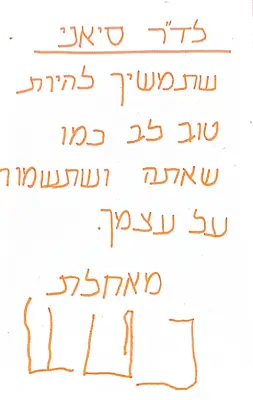 לד"ר סיאני
שתמשיך להיות
טוב לב כמו
שאתה ושתשמור
על עצמך.
מאחלת